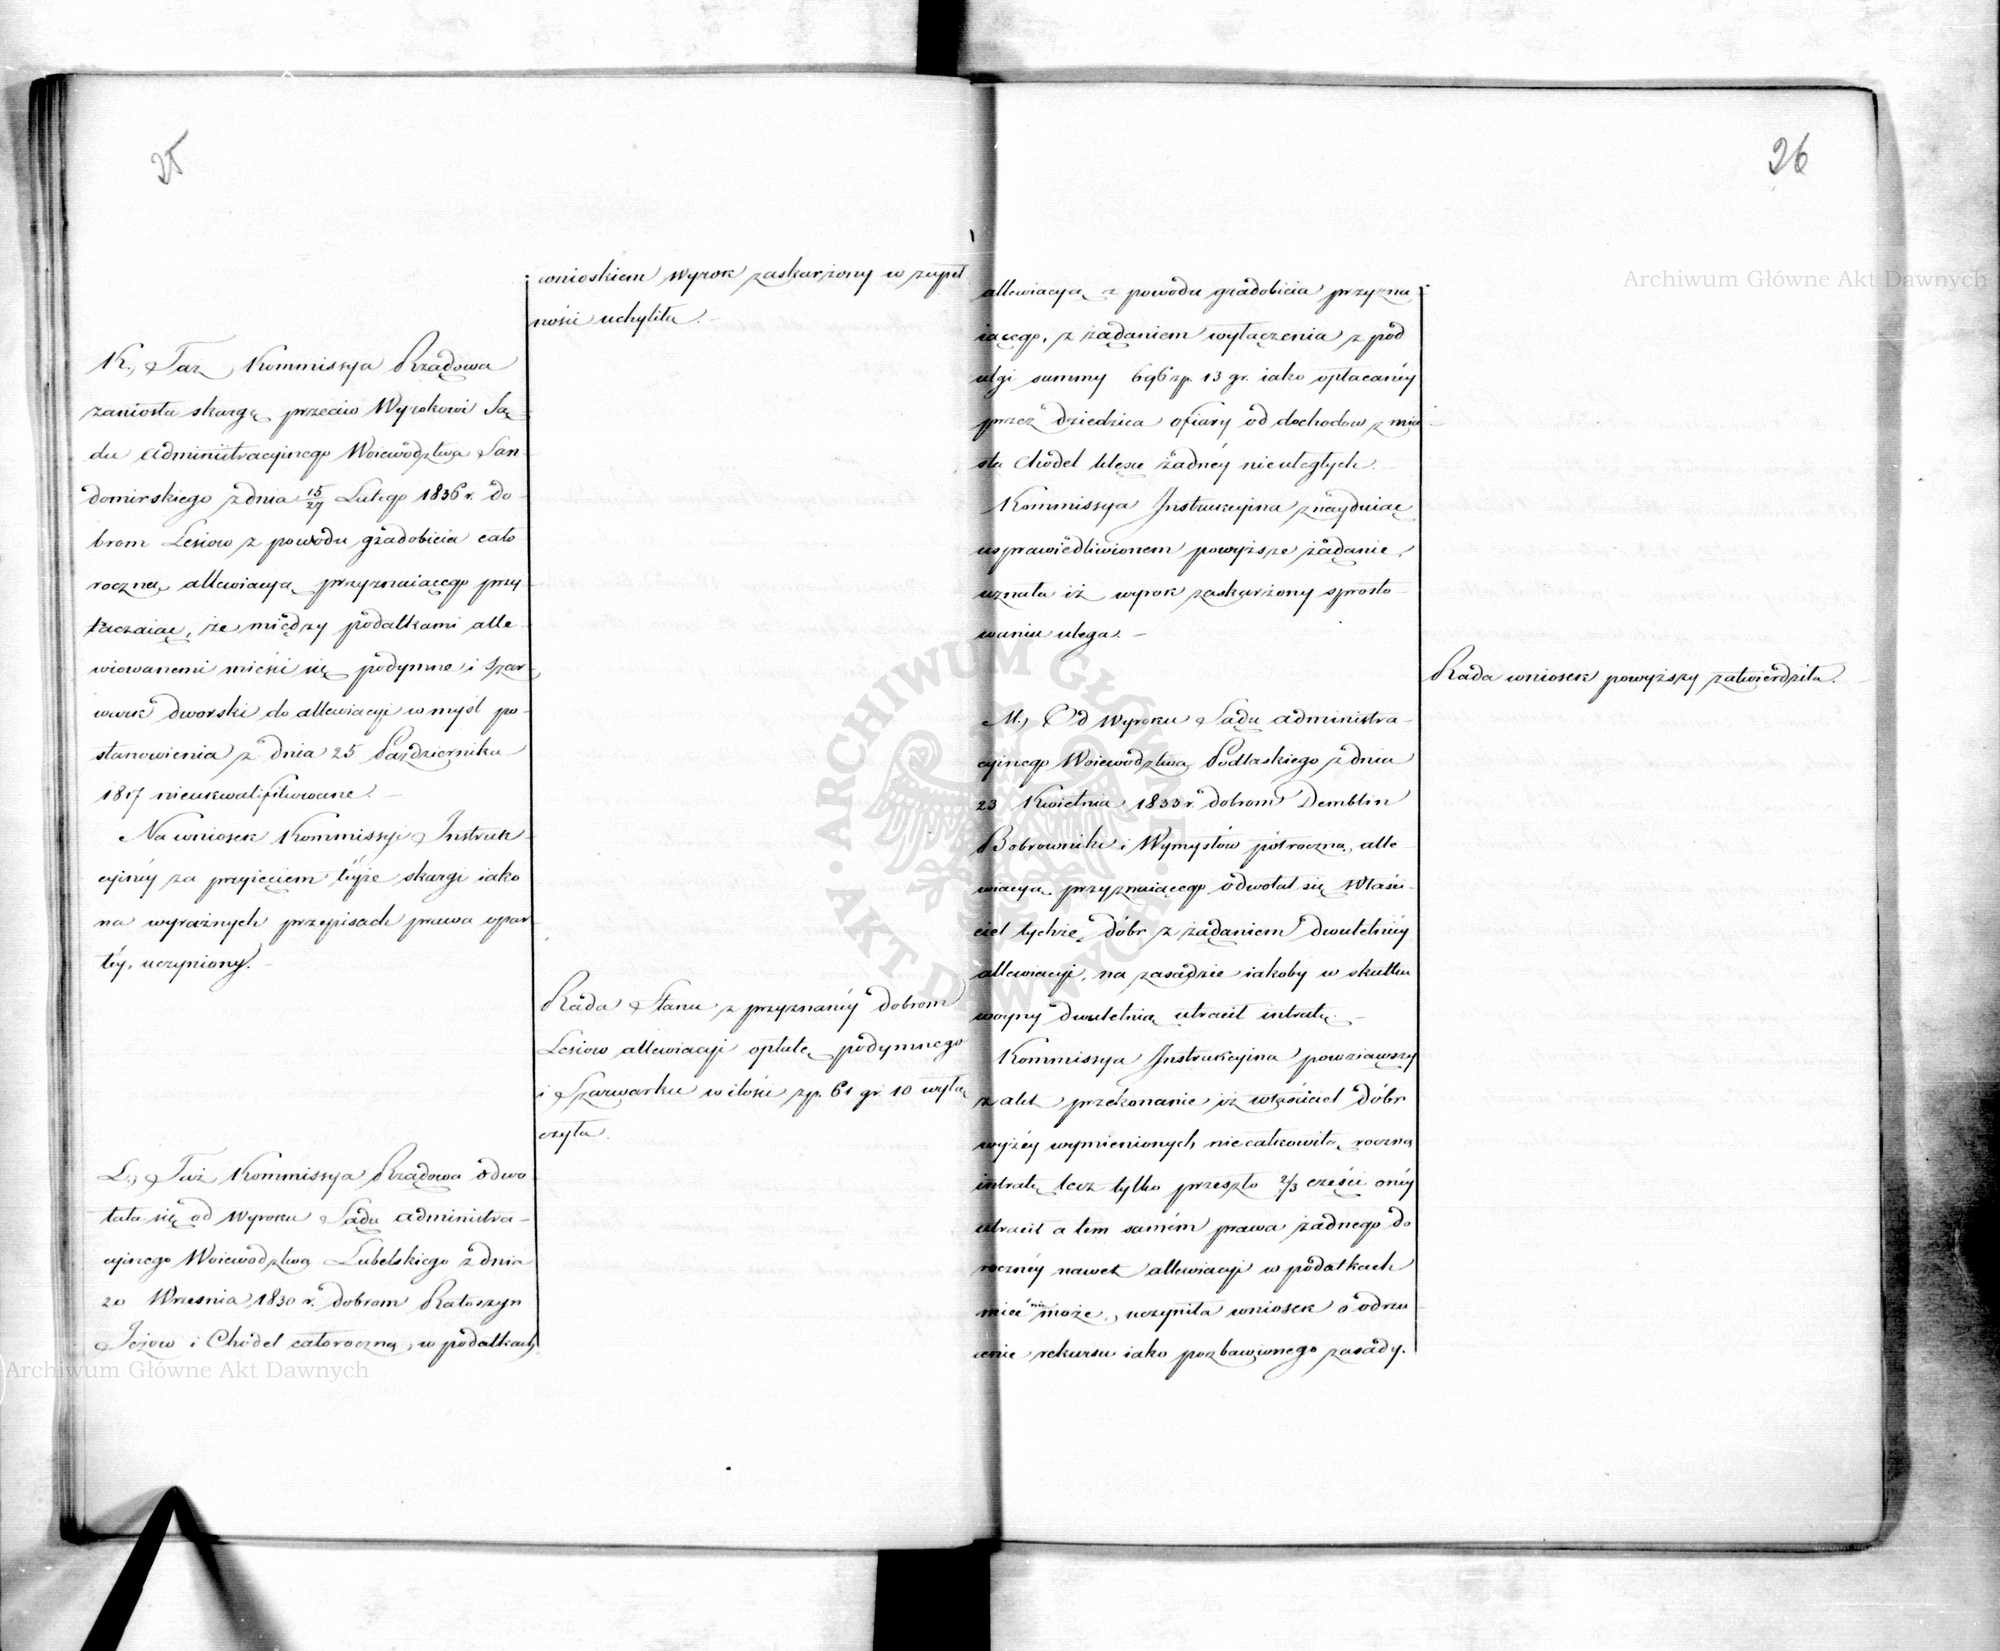 25
wnioskiem Wyrok zaskarżony w zupeł
ności uchyliła. —
K., Taż Kommissya Rządowa
zaniosła skargę przeciw Wyrokowi Są
du Administracyinego Woiewództwa San
domirskiego z dnia 15/27 Lutego 1836 r. do
brom Lesiow z powodu gradobicia cało
roczną allewiacyą przyznaiącego przy
taczaiąc, że między podatkami alle
wiowanemi mieści się podymne i Szar
wark dworski do allewiacyi w myśl po
stanowienia z dnia 25 Października
1817 nieukwalifikowane. —
Na wniosek Kommissyi Instruk
cyinéy za przyięciem téyże skargi iako
na wyraźnych przepisach prawa opar
téy, uczyniony. —
Rada Stanu z przyznanéy dobrom
Lesiow allewiacyi opłatę podymnego
i Szarwarku w ilości zp. 61 gr. 10 wyłą
czyła.
L., Taż Kommissya Rządowa odwo
łała się od Wyroku Sądu administra-
cyinego Woiewództwa Lubelskiego z dnia
20 Września 1830 r. dobrom Ratoszyn
Jeżow i Chodel całoroczną, w podatkach
26
allewiacyą z powodu gradobicia przyzna
iącego, z żądaniem wyłączenia z pod
ulgi summy 696 zp. 13 gr. iako opłacanéy
przez dziedzica ofiary od dochodow z mia
sta Chodel klęsce żadnéy nieuległych. —
Kommissya Instrukcyina znayduiąc
usprawiedliwionem powyższe żądanie,
uznała iż wyrok zaskarżony sprosto
waniu ulega. —
Rada wniosek powyższy zatwierdziła. —
M., Od Wyroku Sądu administra-
cyinego Woiewództwa Podlaskiego z dnia
23 Kwietnia 1833 r. dobrom Demblin
Bobrowniki i Wymysłów półroczną, alle
wiacyą przyznaiącego odwołał się Właści-
ciel tychże dóbr z żądaniem dwuletniéy
allewiacyi, na zasadzie iakoby w skutku
woyny dwuletnią utracił intratę. —
Kommissya Instrukcyina powziąwszy
z akt przekonanie iż właściciel dóbr
wyżéy wymienionych niecałkowitą roczną
intratę lecz tylko przeszło 2/3 części onéy
utracił a tem samém prawa żadnego do
rocznéy nawet allewiacyi w podatkach
mieć nie może, uczyniła wniosek o odrzu
cenie rekursu iako pozbawionego zasady.
Archiwum Główne Akt Dawnych
Archiwum Główne Akt Dawnych
ARCHIWUM GŁÓWNE AKT DAWNYCH